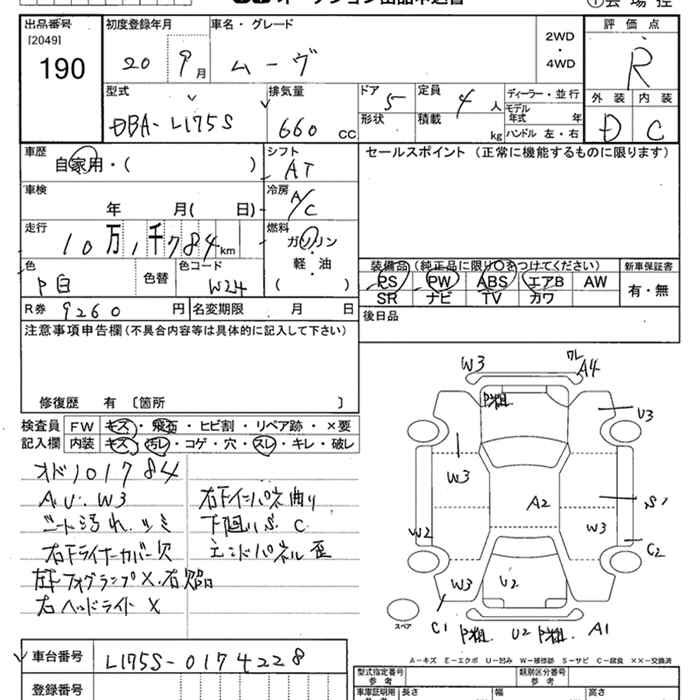 出品番号 初度登録年月 車名・グレード 評価点
[2049]
190 20 9月 ムーヴ 2WD・4WD R
型式 排気量 ドア 定員 ディーラー・並行 外装 内装
DBA-L175S 660CC 5 4人 モデル年式 年 D C
形状 積載 kg ハンドル 左・右
車歴 シフト セールスポイント (正常に機能するものに限ります)
自家用・( ) AT
車検 冷房
年 月( 日) A/C
走行 燃料
10万1千784km ガソリン
軽・油
( )
色 色替 色コード 装備品 (純正品に限り○をつけてください) 新車保証書
P白 W24 PS PW ABS エアB AW 有・無
SR ナビ TV カワ
R券 9260円 名変期限 月 日 後日品
注意事項申告欄(不具合内容等は具体的に記入して下さい)
修復歴 有 〔箇所 〕
検査員 FW キズ・飛石・ヒビ割・リペア跡・×要
記入欄 内装 キズ・汚れ・コゲ・穴・スレ・キレ・破レ
オド101784
A.U.W3 右下インパネ曲り
シート汚れ.シミ 下廻りS C
右下ライナーカバー欠 エンドパネル歪
フォグランプX.右
右ヘッドライトX
W3 ワレ A4
P粗 U3
W3
A2 S1
W2 W3
C2
W3 U2
スペア C1 P粗. U2 P粗. A1
A－キズ E－エクボ U－凹み W－補修跡 S－サビ C－腐食 ××－交換済
車台番号 L175S-0174228 型式指定番号 参考 類別区分番号 参考
登録番号 車庫証明用 参考 長さ 幅 高さ